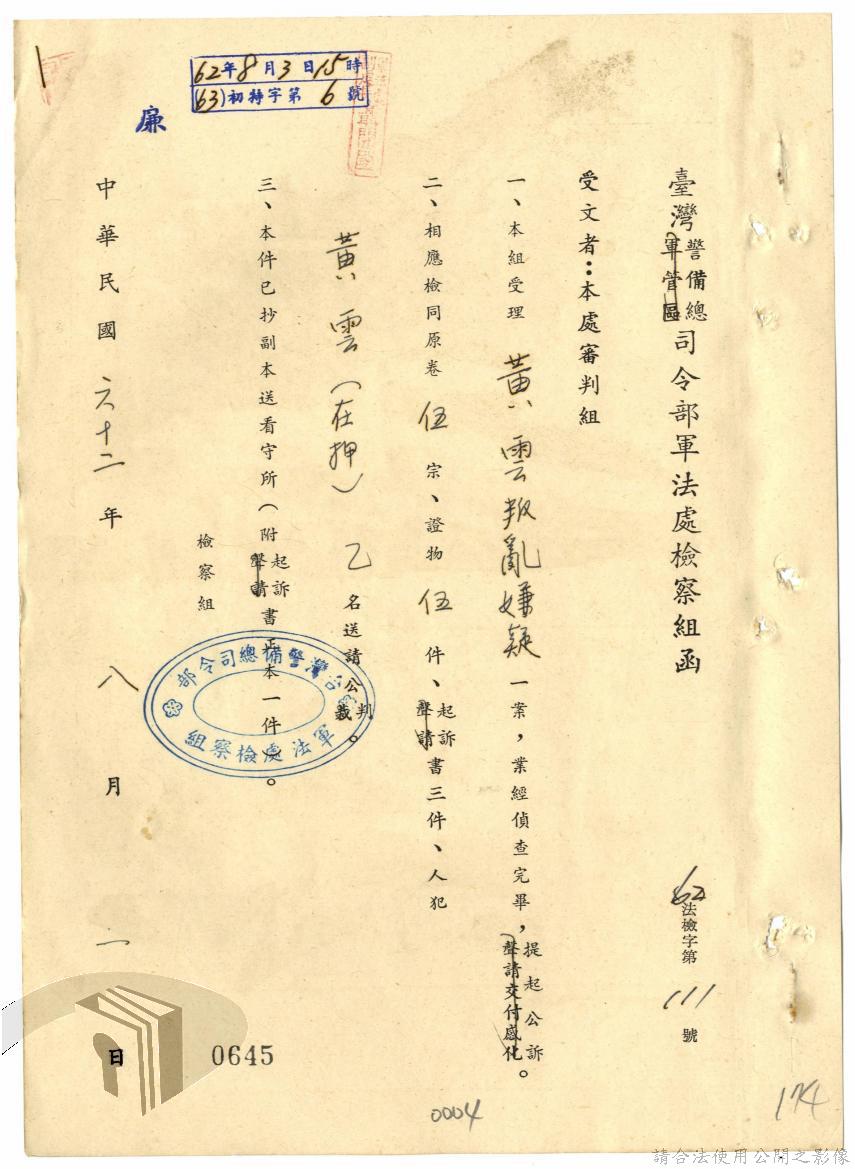 臺灣警備總軍管區司令部軍法處檢察組函
62法檢字第111號
受文者：本處審判組
一、本組受理黃雲叛亂嫌疑一案，業經偵查完畢，提起公訴聲請交付感化。
二、相應檢同原卷伍宗、證物伍件、起訴聲請書三件、人犯
黃雲（在押）乙名送請公判裁。
三、本件已抄副本送看守所（附起訴聲請書正本一件）。
檢察組
台灣警備總司令部
軍法處檢察組
中華民國六十二年八月一日
62年8月3日15時
(63)初特字第6號
廉
0645
0004
174
請合法使用公開之影像